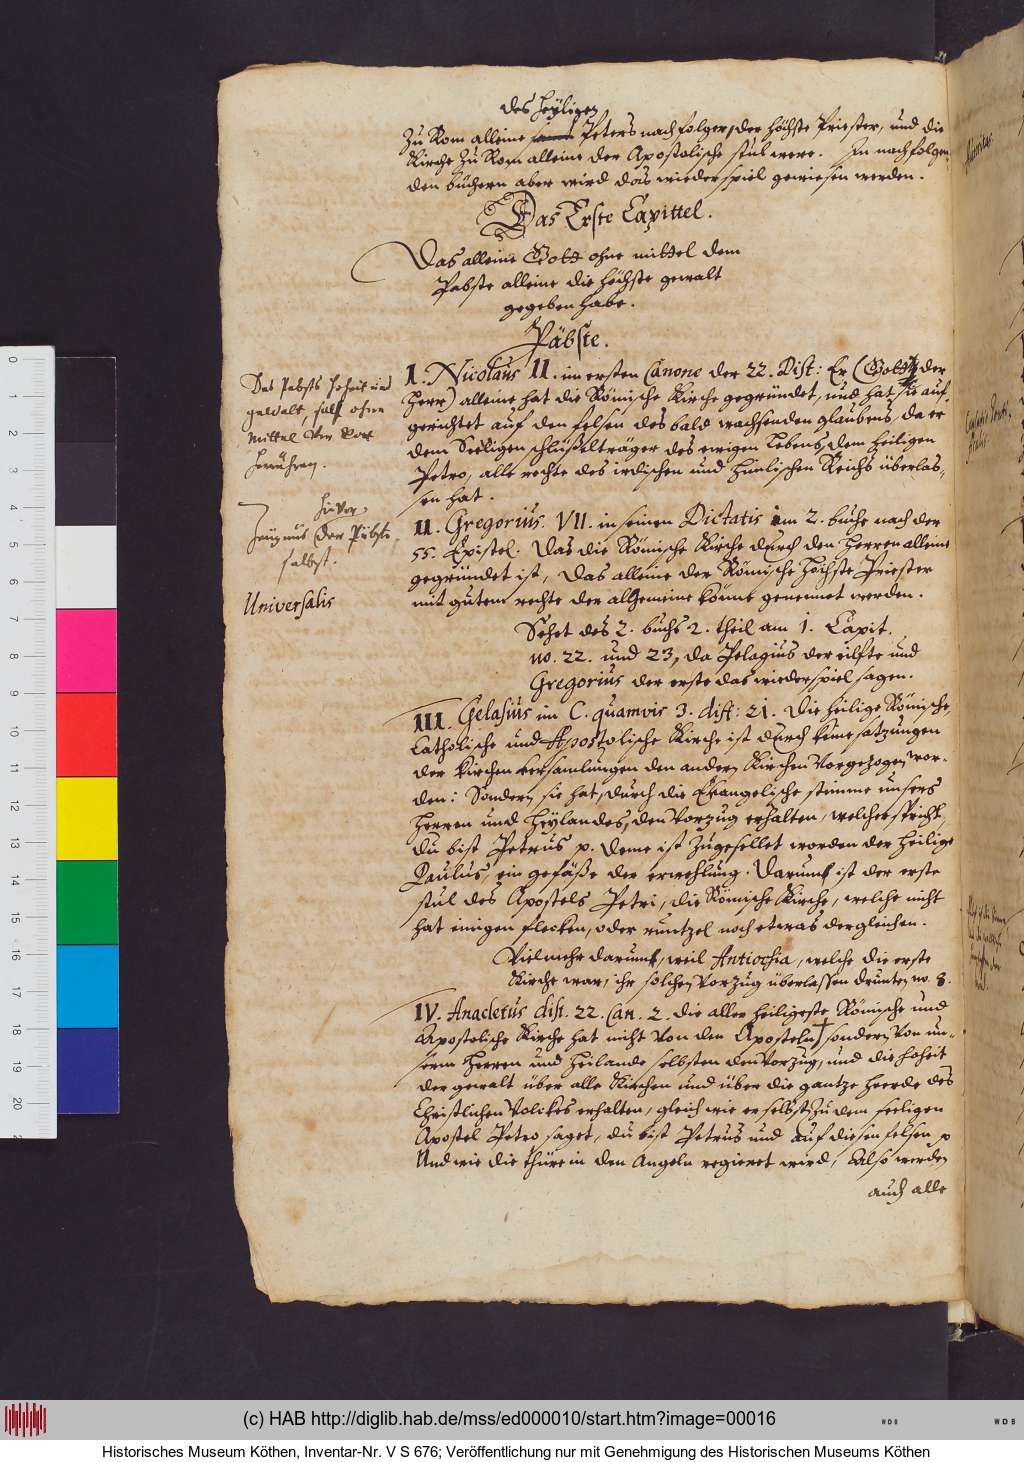 des heyligen
Zu Rom alleine Peters nachfolger, der höchste Priester, und die
Kirche zu Rom alleine der Apostolische stul were. In nachfolgen-
den büchern aber wird das wiederspiel gewiesen werden.
Das Erste Capittel.
Das alleine Gott ohne mittel dem
Pabste alleine die höchste gewalt
gegeben habe.
Päbste.
I. Nicolaus II. im ersten Canone der 22. Dist: Er (Gott der
Herr) alleine hat die Römische Kirche gegründet, und hat sie auf-
gerichtet auf den felsen des bald wachsenden glaubens, da er
dem Seeligen schlüßelträger des ewigen Lebens, dem heiligen
Petro, alle rechte des irdischen und himlischen Reichs überlas-
sen hat.
Des Pabsts hoheit und
gewalt, soll ohne
mittel von Gott
herrühren.
hievon
Zeugnus der Päbste
selbst.
II. Gregorius VII. in seinen Dictatis im 2. buche nach der
55. Epistel. Das die Römische Kirche durch den Herren alleine
gegründet ist, Das alleine der Römische höchste Priester
mit gutem rechte der allgemeine könne genennet werden.
Universalis
Sehet des 2. buchs 2. theil am 1. Capit.
no. 22. und 23, da Pelagius der eilfte und
Gregorius der erste das wiederspiel sagen.
III. Gelasius im C. quamvis 3. dist: 21. Die heilige Römische,
Catholische und Apostolische Kirche ist durch keine satzungen
der Kirchen versamlungen den andern Kirchen vorgezogen wor-
den: Sondern sie hat, durch die Evangelische stimme unsers
Herren und Heylandes, den vorzug erhalten, welcher spricht,
du bist Petrus p. deme ist zugesellet worden der heilige
Paulus, ein gefäße der erwehlung. Darumb ist der erste
stul des Apostels Petri, die Römische Kirche, welche nicht
hat einigen flecken, oder runtzel noch etwas dergleichen.
Vielmehr darumb, weil Antiochia, welche die erste
Kirche war, ihr solchen vorzug überlassen drunten no. 8.
IV. Anacletus dist. 22. Can. 2. die aller heiligeste Römische und
Apostolische Kirche hat nicht von den Aposteln, sondern von un-
serm Herren und Heilande selbsten den vorzug, und die hoheit
der gewalt über alle Kirchen und über die gantze heerde des
Christlichen volckes erhalten, gleich wie er selbst zu dem seeligen
Apostel Petro saget, du bist Petrus und auf diesen felsen p
Und wie die thüre in den Angeln regieret wird, Also werden
auch alle
(c) HAB http://diglib.hab.de/mss/ed000010/start.htm?image=00016
Historisches Museum Köthen, Inventar-Nr. V S 676; Veröffentlichung nur mit Genehmigung des Historischen Museums Köthen